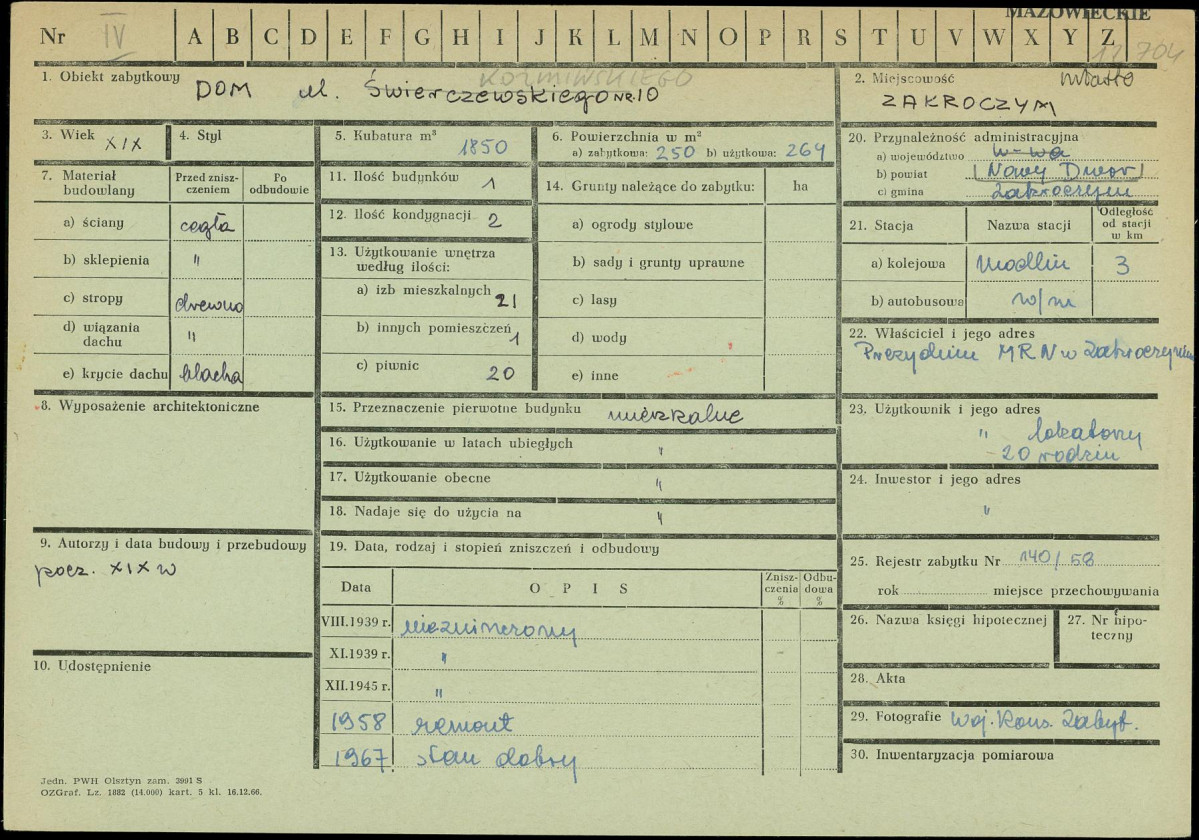 MAZOWIECKIE
Nr IV A B C D E F G H I J K L M N O P R S T U V W X Y Z
12 704
1. Obiekt zabytkowy
KOŹMIŃSKIEGO
DOM ul. Świerczewskiego NR. 10
2. Miejscowość miasto
ZAKROCZYM
3. Wiek XIX
4. Styl
5. Kubatura m³ 1850
6. Powierzchnia w m²
a) zabytkowa: 250 b) użytkowa: 264
7. Materiał budowlany
Przed zniszczeniem
Po odbudowie
a) ściany cegła
b) sklepienia "
c) stropy drewno
d) wiązania dachu "
e) krycie dachu blacha
8. Wyposażenie architektoniczne
9. Autorzy i data budowy i przebudowy
pocz. XIX w
10. Udostępnienie
11. Ilość budynków 1
12. Ilość kondygnacji 2
13. Użytkowanie wnętrza
według ilości:
a) izb mieszkalnych 21
b) innych pomieszczeń 1
c) piwnic 20
14. Grunty należące do zabytku: ha
a) ogrody stylowe
b) sady i grunty uprawne
c) lasy
d) wody
e) inne
15. Przeznaczenie pierwotne budynku mieszkalne
16. Użytkowanie w latach ubiegłych "
17. Użytkowanie obecne "
18. Nadaje się do użycia na "
19. Data, rodzaj i stopień zniszczeń i odbudowy
Data OPIS Zniszczenia % Odbudowa %
VIII.1939 r. niezniszczony
XI.1939 r. "
XII.1945 r. "
1958 remont
1967. stan dobry
20. Przynależność administracyjna
a) województwo w-wa
b) powiat Nowy Dwór
c) gmina Zakroczym
21. Stacja Nazwa stacji Odległość od stacji w km
a) kolejowa Modlin 3
b) autobusowa w/m
22. Właściciel i jego adres
Prezydium MRN w Zakroczymiu
23. Użytkownik i jego adres
" lokatorzy
- 20 rodzin
24. Inwestor i jego adres
"
25. Rejestr zabytku Nr 140/58
rok miejsce przechowywania
26. Nazwa księgi hipotecznej
27. Nr hipoteczny
28. Akta
29. Fotografie Woj. Kons. Zabyt.
30. Inwentaryzacja pomiarowa
Jedn. PWH Olsztyn zam. 3991 S
OZGraf. Lz. 1882 (14.000) kart. 5 kl. 16.12.66.